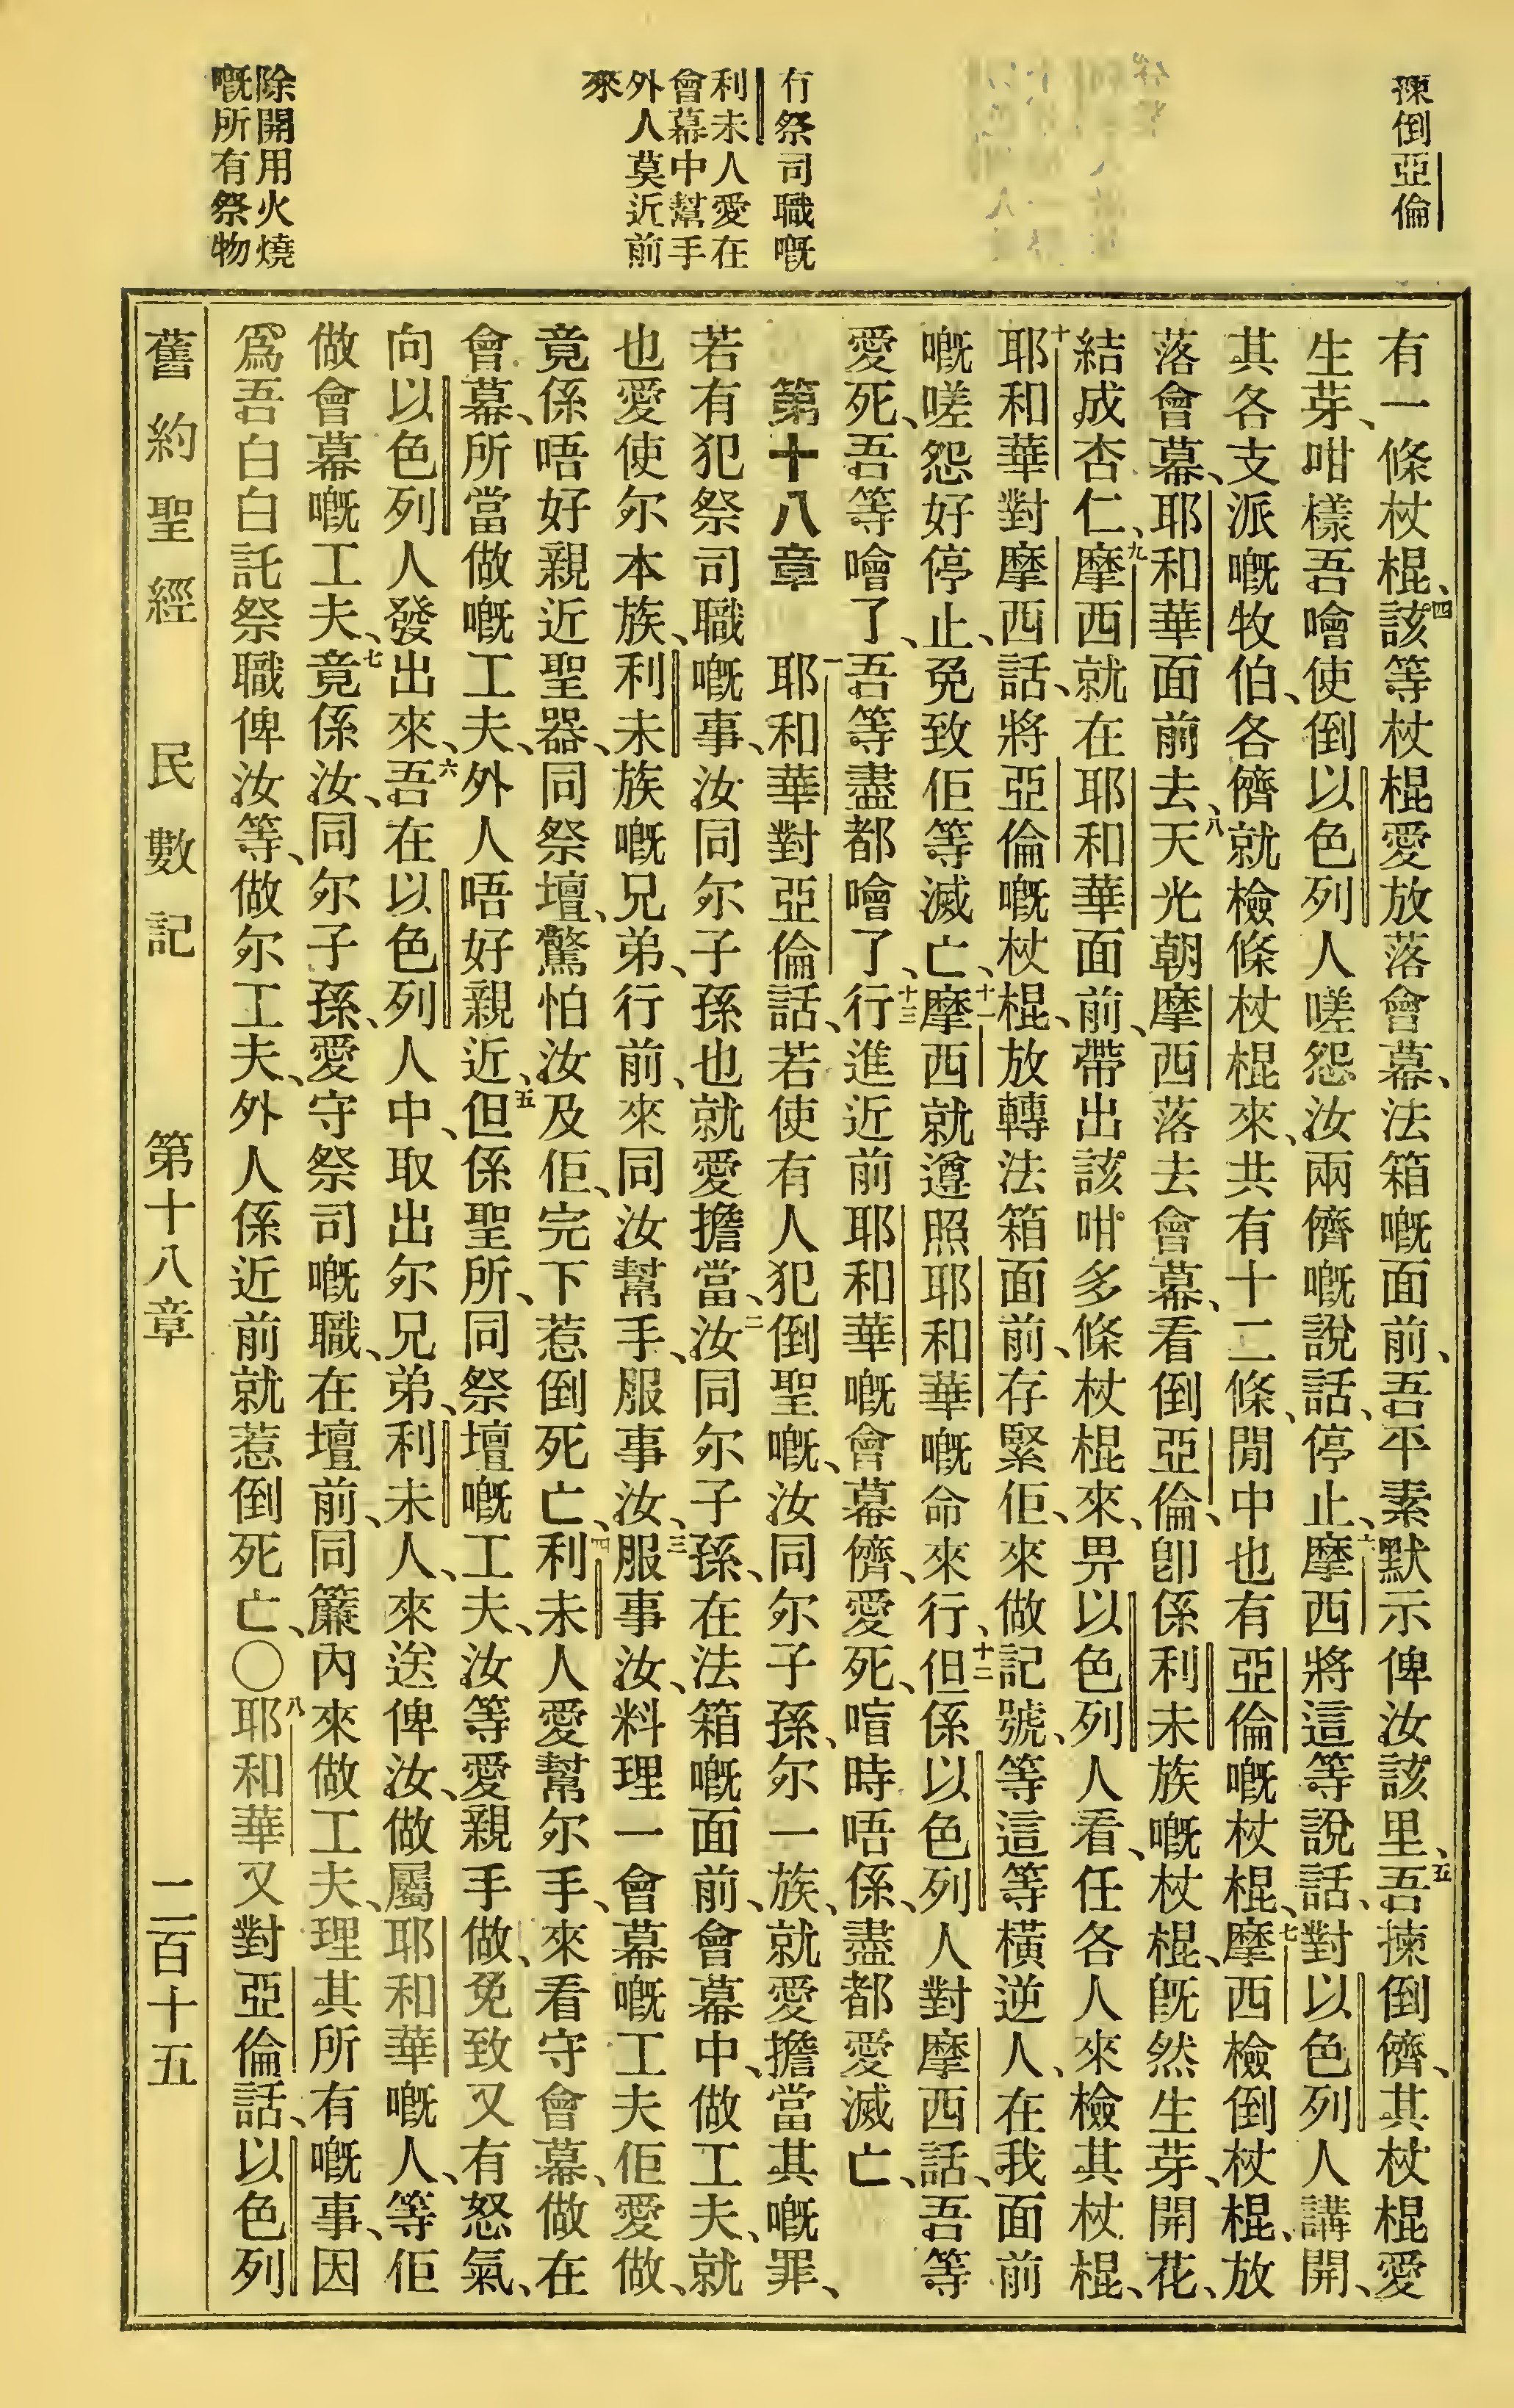 揀倒亞倫
冇祭司職嘅
利未人愛在
會幕中幫手
外人莫近前
來
除開用火燒
嘅所有祭物
有一條杖棍、四該等杖棍愛放落會幕、法箱嘅面前、吾平素默示俾汝該里、五吾揀倒儕、其杖棍愛
生芽、咁樣吾噲使倒以色列人嗟怨汝兩儕嘅說話、停止、六摩西將這等說話、對以色列人講開、
其各支派嘅牧伯、各儕就檢條杖棍來、共有十二條、閒中也有亞倫嘅杖棍、七摩西檢倒杖棍、放
落會幕、耶和華面前去、八天光朝摩西落去會幕、看倒亞倫、卽係利未族嘅杖棍、旣然生芽、開花、
結成杏仁、九摩西就在耶和華面前、帶出該咁多條杖棍來、畀以色列人看、任各人來檢其杖棍、
十耶和華對摩西話、將亞倫嘅杖棍、放轉法箱面前、存緊佢、來做記號、等這等橫逆人、在我面前
嘅嗟怨好停止、免致佢等滅亡、十一摩西就遵照耶和華嘅命來行、十二但係以色列人對摩西話、吾等
愛死、吾等噲了、吾等盡都噲了、十三行進近前耶和華嘅會幕儕、愛死、喑時唔係、盡都愛滅亡、
第十八章　一耶和華對亞倫話、若使有人犯倒聖嘅、汝同尔子孫、尔一族、就愛擔當其嘅罪、
若有犯祭司職嘅事、汝同尔子孫也就愛擔當、二汝同尔子孫、在法箱嘅面前、會幕中、做工夫、就
也愛使尔本族、利未族嘅兄弟、行前、來同汝幫手、服事汝、三服事汝、料理一會幕嘅工夫佢愛做、
竟係唔好親近聖器、同祭壇、驚怕汝及佢、完下惹倒死亡、四利未人愛幫尔手、來看守會幕、做在
會幕、所當做嘅工夫、外人唔好親近、五但係聖所、同祭壇嘅工夫、汝等愛親手做、免致又有怒氣、
向以色列人發出來、六吾在以色列人中、取出尔兄弟、利未人、來送俾汝、做屬耶和華嘅人、等佢
做會幕嘅工夫、七竟係汝、同尔子孫、愛守祭司嘅職、在壇前、同簾內來做工夫、理其所有嘅事、因
爲吾白白託祭職俾汝等、做尔工夫、外人係近前就惹倒死亡、〇八耶和華又對亞倫話、以色列
舊約聖經　民數記　第十八章　二百十五